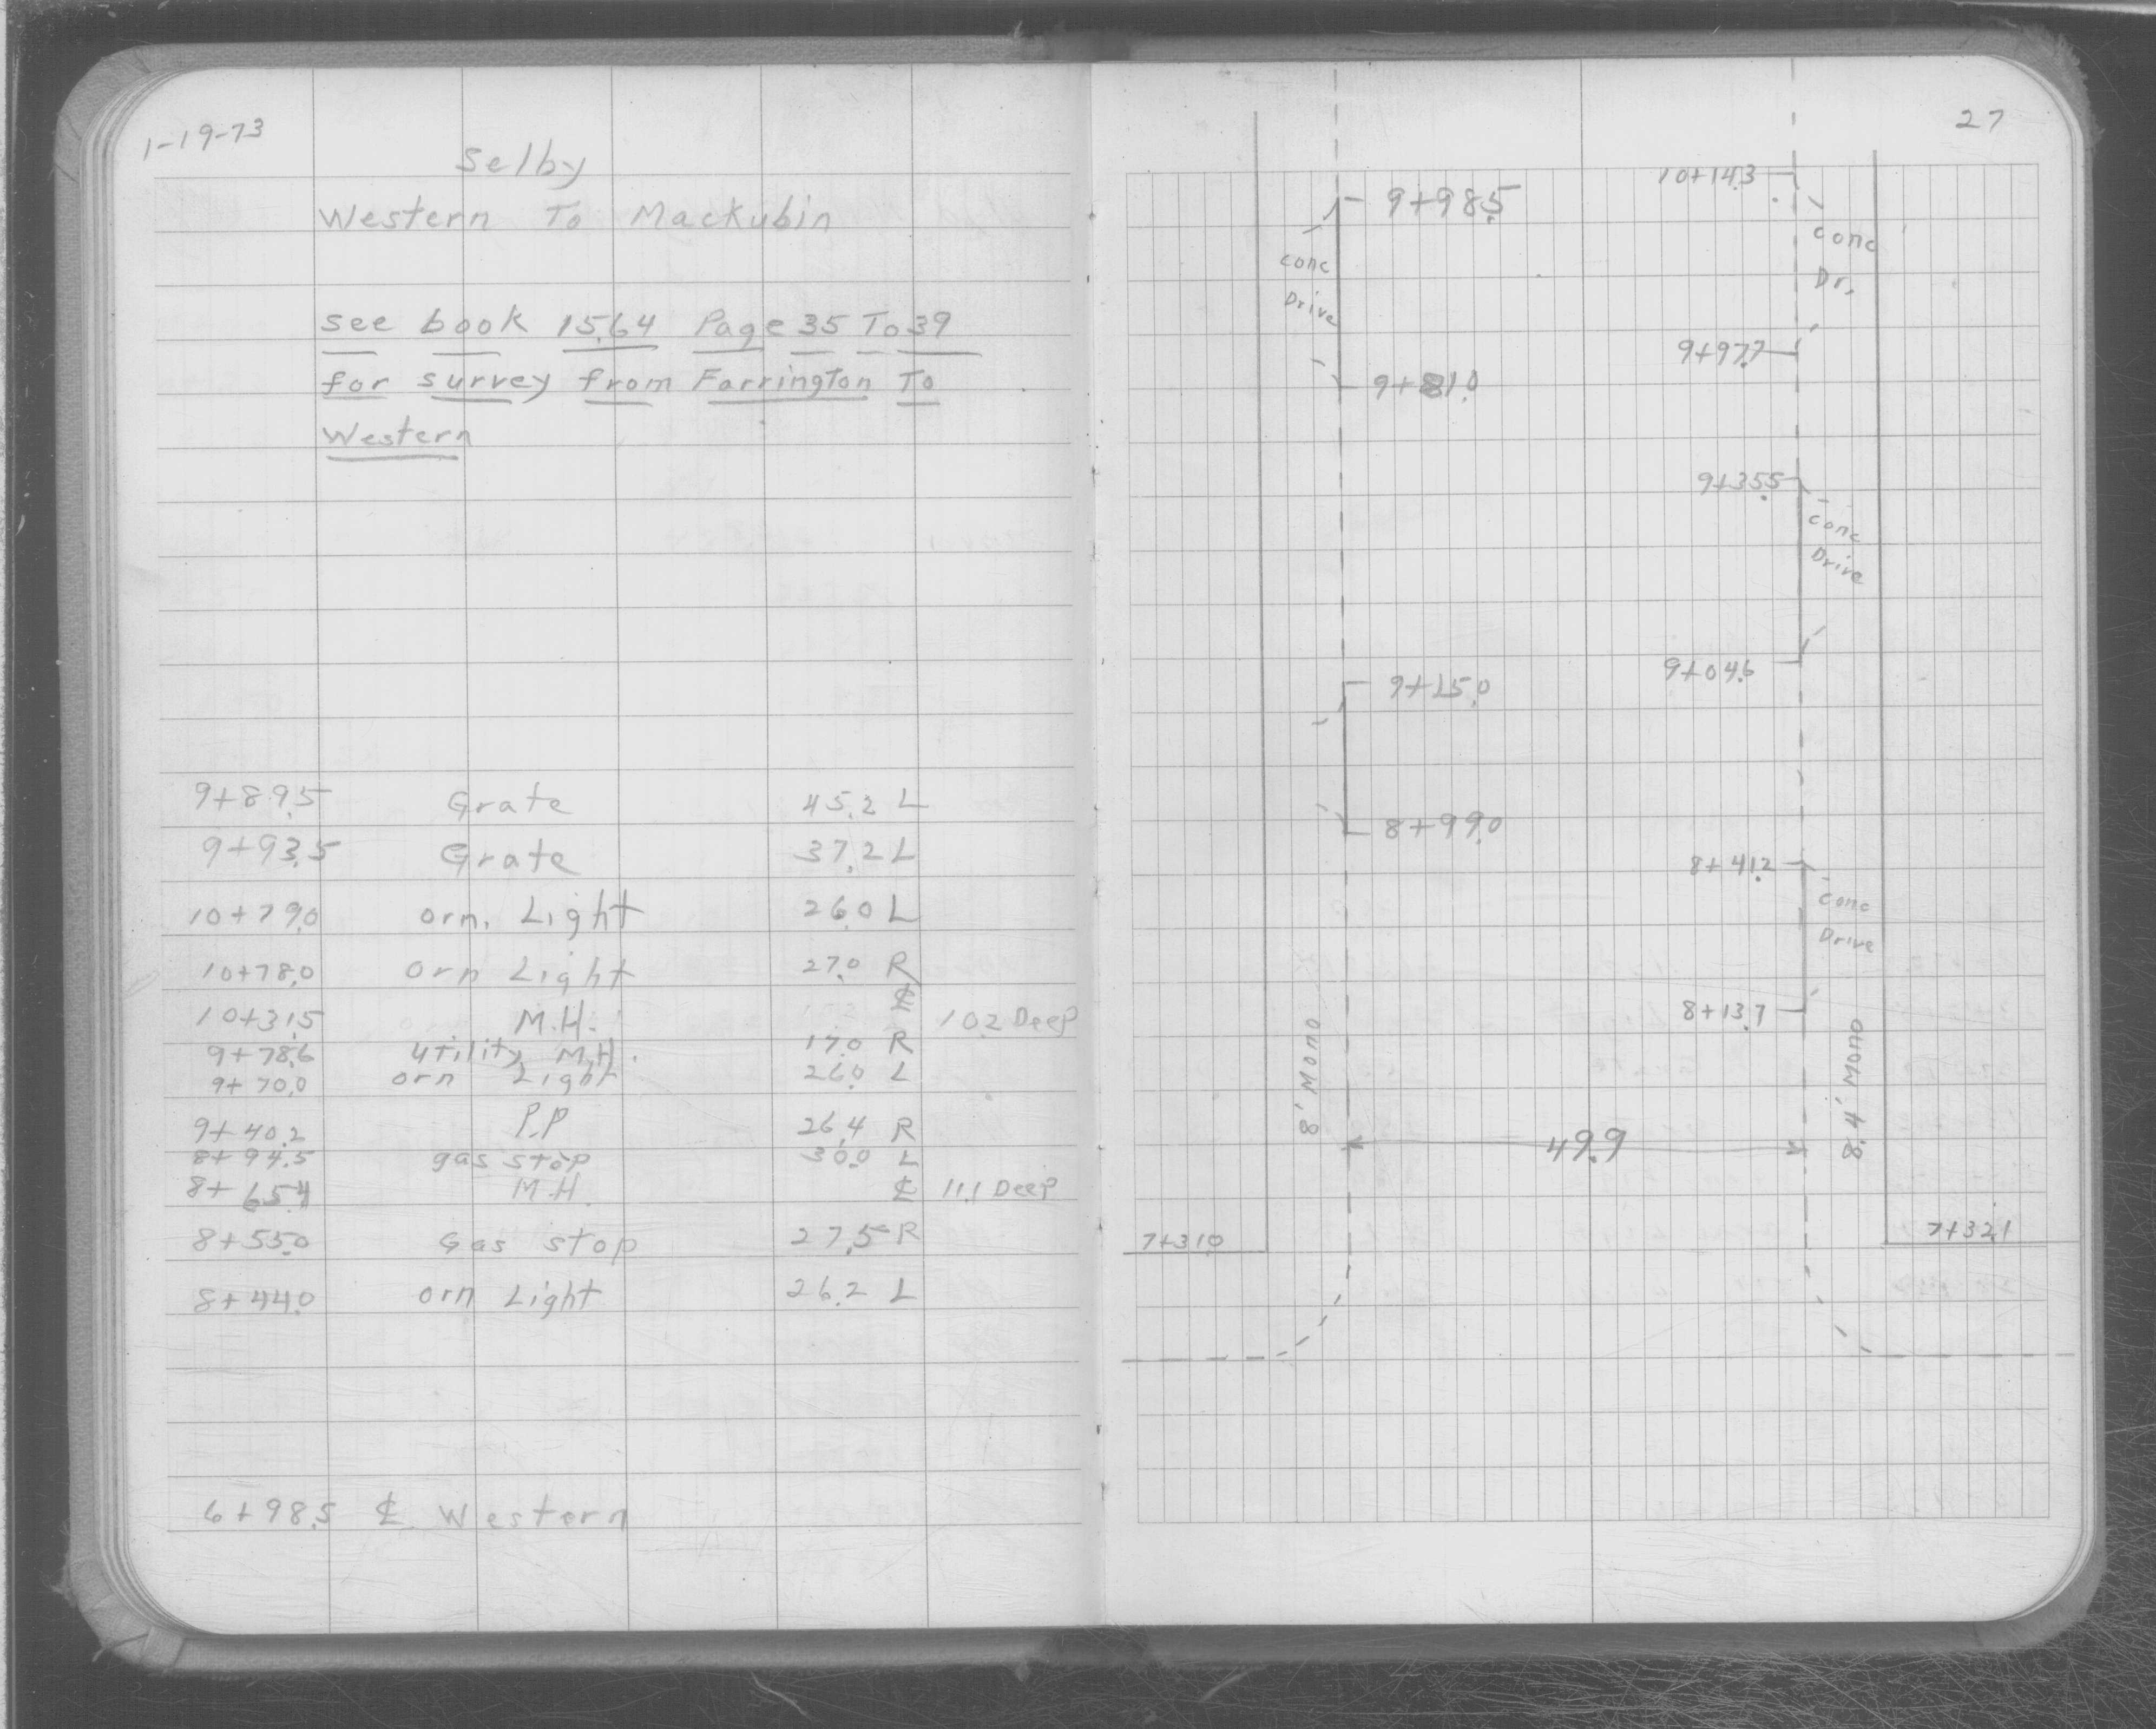 1-19-73
Selby
Western To Mackubin
See book 1564 Page 35 To 39
for survey from Farrington To
Western
9+89.5 Grate 45.2 L
9+93.5 Grate 37.2 L
10+79.0 orn. Light 26.0 L
10+78.0 orn Light 27.0 R
10+31.5 M.H. ℄ 10.2 Deep
9+78.6 utility M.H. 17.0 R
9+70.0 orn Light 26.0 L
9+40.2 P.P 26.4 R
8+94.5 gas stop 30.0 L
8+65.4 M.H. ℄ 11.1 Deep
8+55.0 Gas stop 27.5 R
8+44.0 orn Light 26.2 L
6+98.5 ℄ Western
27
10+14.3
9+98.5
conc
Dr.
conc
Drive
9+97.7
9+81.0
9+35.5
conc
Drive
9+04.6
9+15.0
8+99.0
8+41.2
conc
Drive
8+13.7
8' Mono
8.4' Mono
49.9
7+31.0
7+32.1